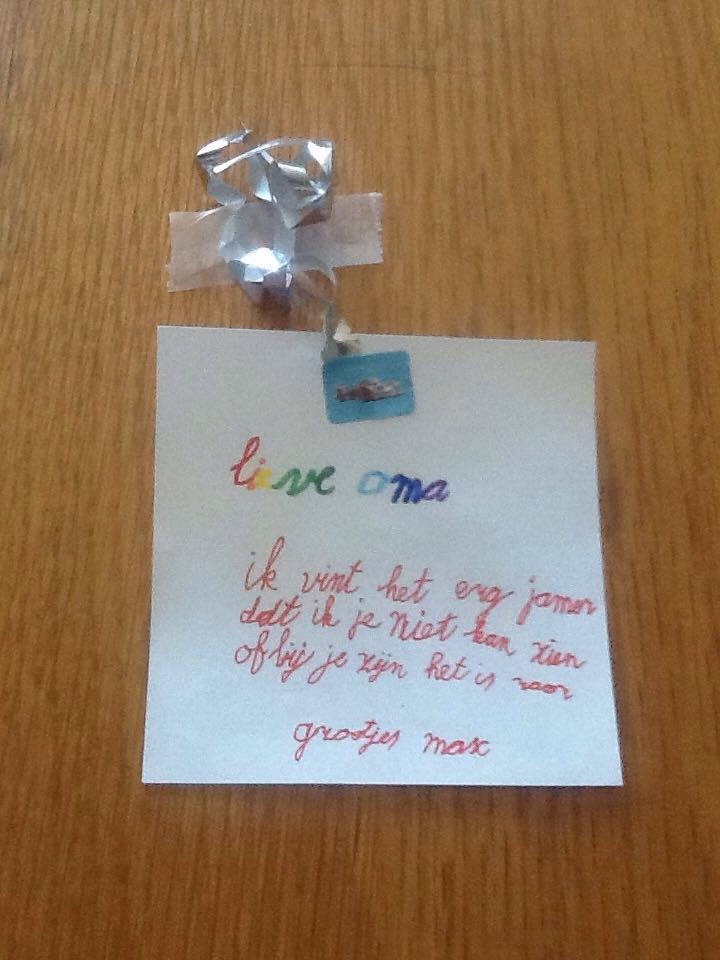 lieve oma
ik vint het erg jamer
dat ik je niet kan zien
of bij je zijn het is raar
grootjes max